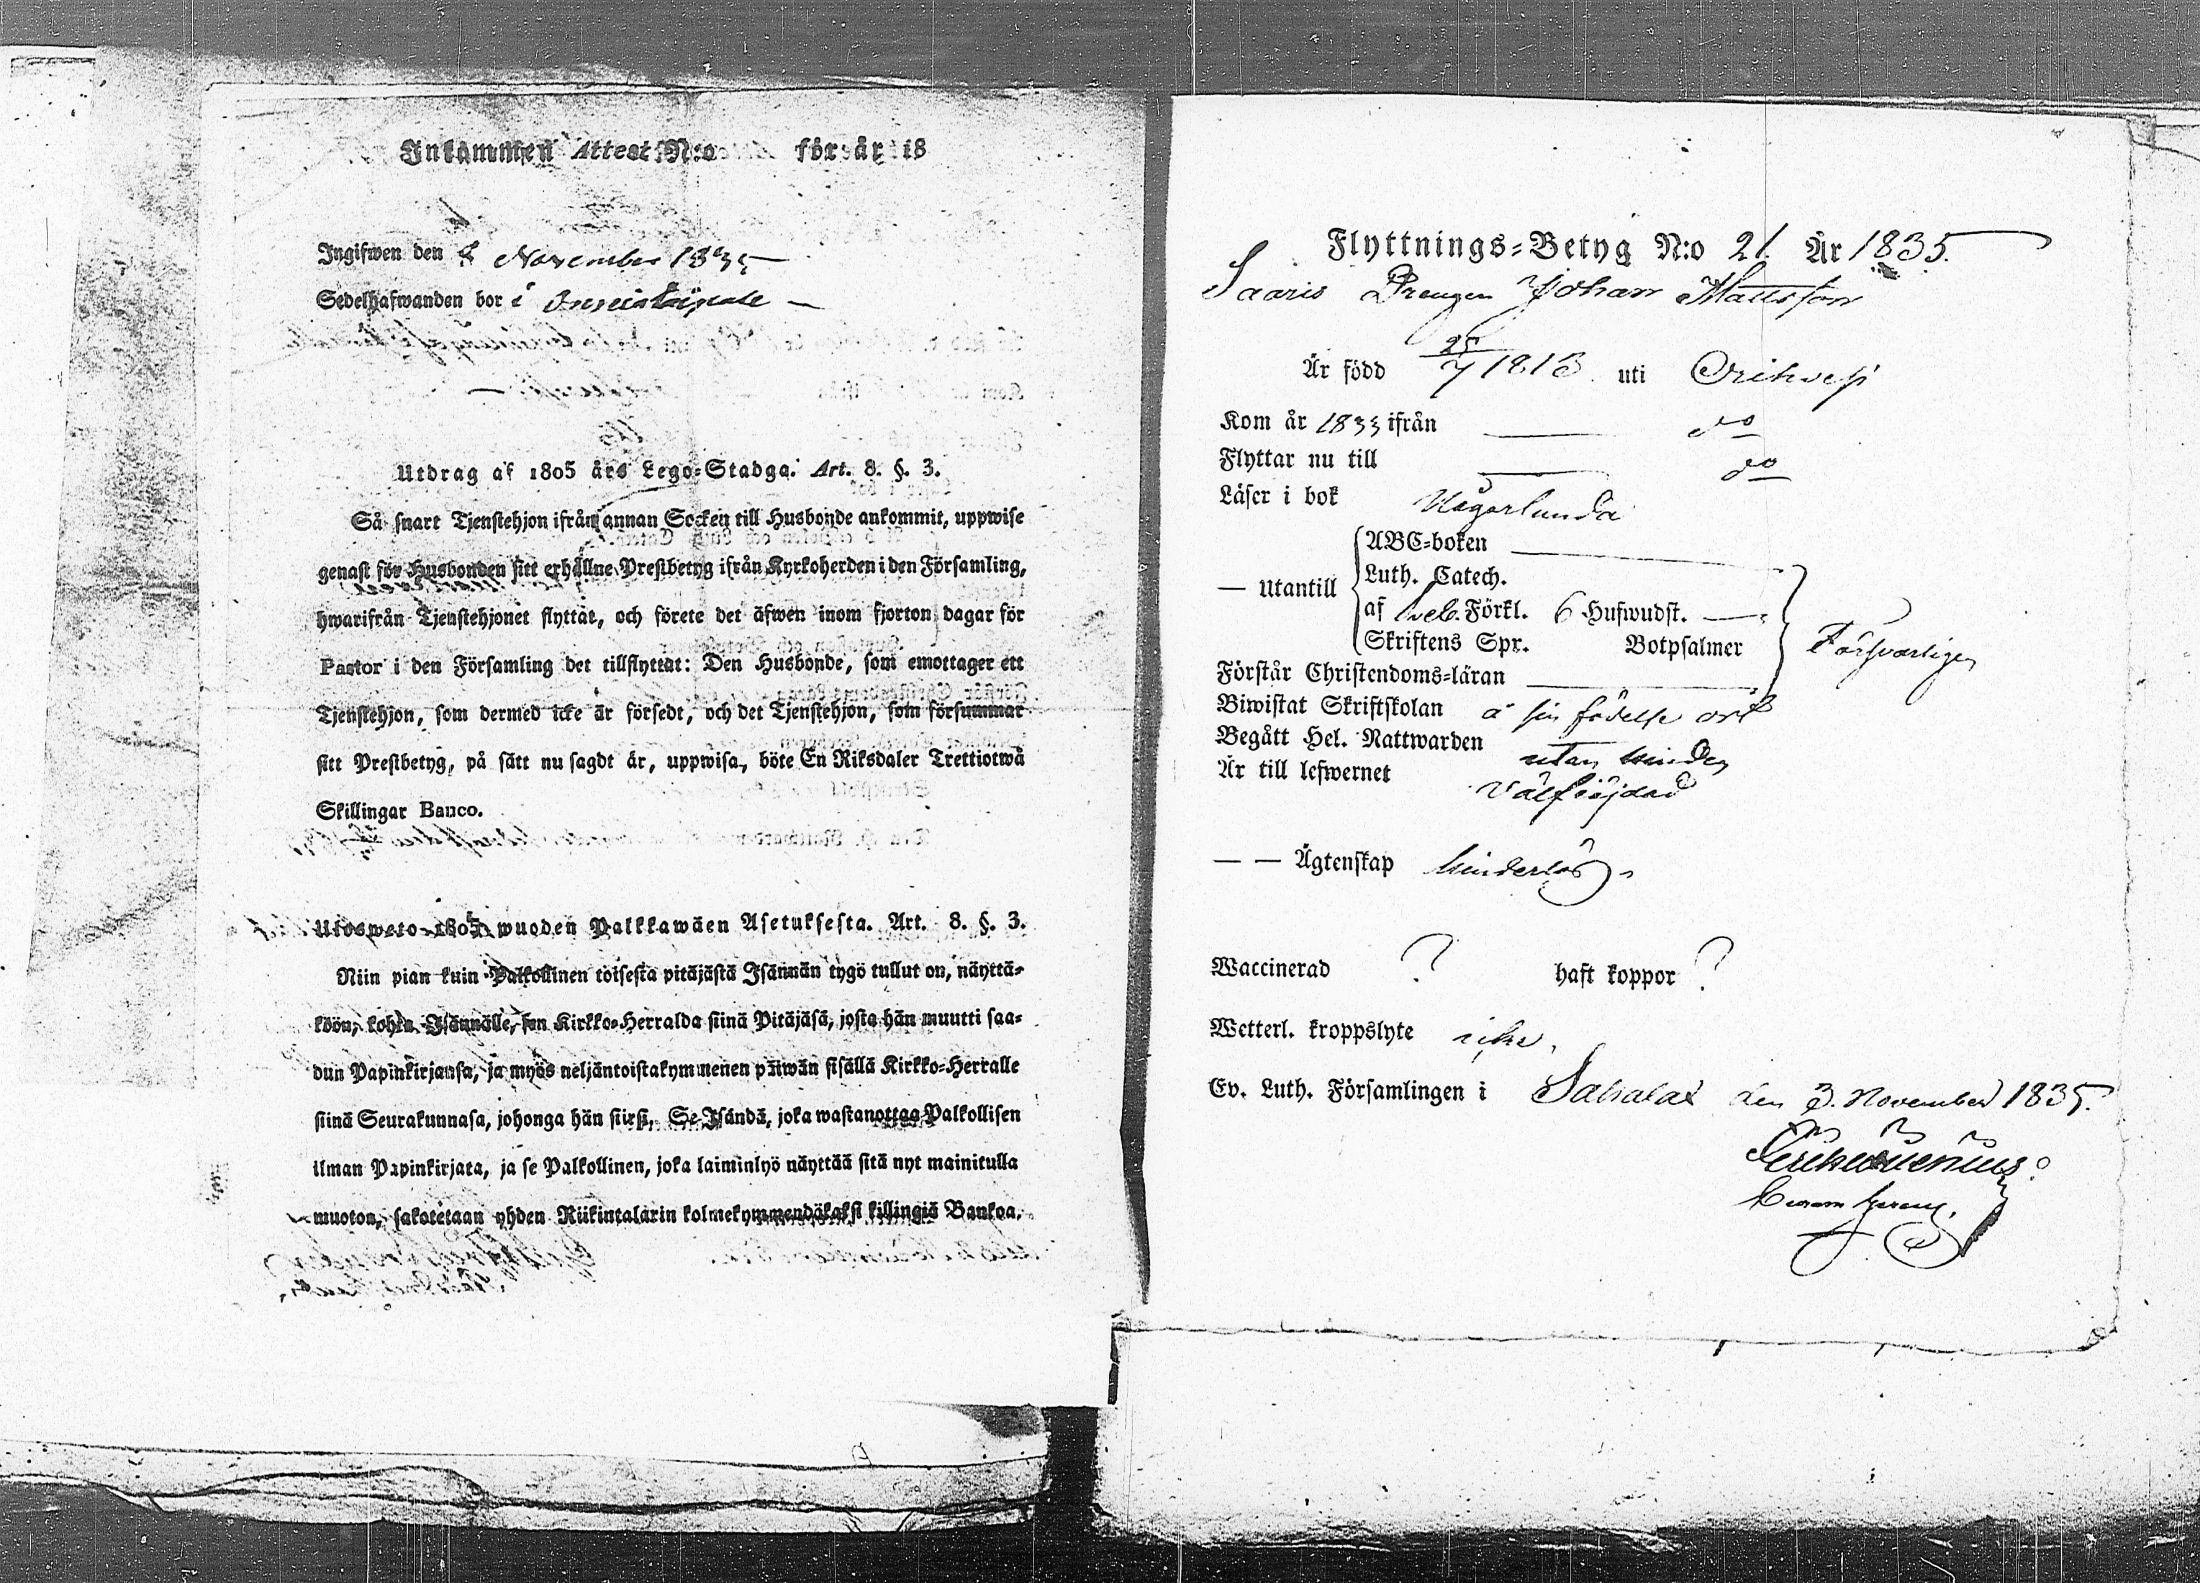 Inkommen Attest N:o för år 18
Ingifwen den November 1835
Sedelhafwanden bor i
Utdrag af 1805 års Lego-Stadga. Art. 8. §. 3.
Så snart Tjenstehjon ifrån annan Socken till Husbonde ankommit, uppwise
genast för Husbonden sitt erhållne Prestbetyg ifrån Kyrkoherden i den Församling,
hwarifrån Tjenstehjonet flyttat, och förete det äfwen inom fjorton dagar för
Pastor i den Församling det tillflyttat: Den Husbonde, som emottager ett
Tjenstehjon, som dermed icke är försedt, och det Tjenstehjon, som försummar
sitt Prestbetyg, på sätt nu sagdt är, uppwisa, böte En Riksdaler Trettiotwå
Skillingar Banco.
Ulosweto 1805 wuoden Palkkawäen Asetuksesta. Art. 8. §. 3.
Niin pian kuin Palkollinen toisesta pitäjästä Isännän tygö tullut on, näyttä-
köön, kohta Isännälle, sen Kirkko-Herralda siinä Pitäjäsä, josta hän muutti saa-
dun Papinkirjansa, ja myös neljäntoistakymmenen päiwän sisällä Kirkko-Herralle
siinä Seurakunnasa, johonga hän siirß. Se Isändä, joka wastanottaa Palkollisen
ilman Papinkirjata, ja se Palkollinen, joka laiminlyö näyttää sitä nyt mainitulla
muoton, sakotetaan yhden Riikintalarin kolmekymmendäkaksi killingiä Bankoa.
Flyttnings-Betyg N:o 21. År 1835.
Saaris Drengen Johan Mattsson
Är född 25/7 1813 uti Orihvesi
Kom år 1833 ifrån — do
Flyttar nu till — do
Läser i bok
— Utantill
ABC-boken —
Luth. Catech.
af Sveb. Förkl. 6 Hufwudst. —
Skriftens Spr. Botpsalmer
Försvarligen
Förstår Christendoms-läran —
Biwistat Skriftskolan å sin födelse ort
Begått Hel. Nattwarden utan hinder
Är till lefwernet välfräjdad
— — Ägtenskap hinderlös
Waccinerad ? haft koppor ?
Wetterl. kroppslyte icke.
Ev. Luth. Församlingen i Sahalax den 3. November 1835.